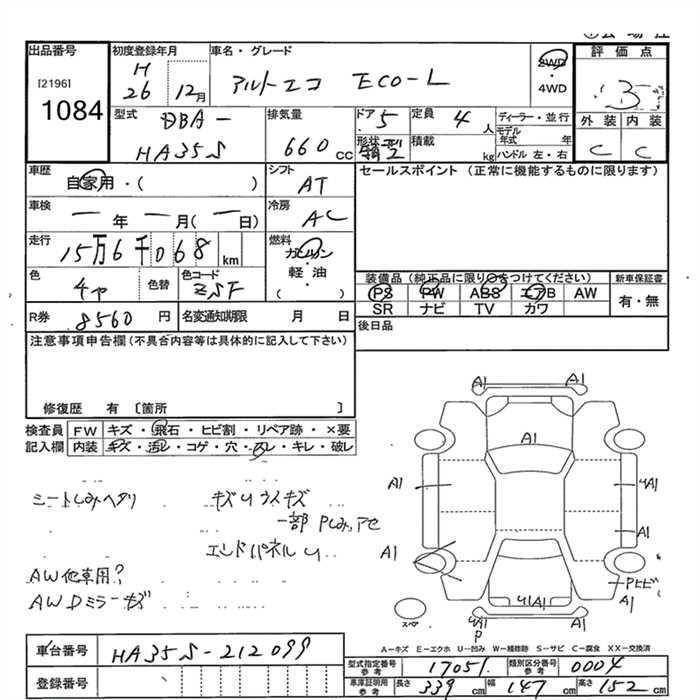 出品番号 初度登録年月 車名・グレード 評価点
[2196] H 26 12月 アルトエコ ECO-L 2WD・4WD 3
1084
型式 DBA- HA35S 排気量 660cc ドア 5 定員 4人 ディーラー・並行 外装 内装
形状 積載 kg モデル年式 年 C C
ハンドル 左・右
車歴 自家用・( ) シフト AT セールスポイント (正常に機能するものに限ります)
車検 一年 一月(一日) 冷房 AC
走行 15万6千068km 燃料 ガソリン・軽油 ( )
色 色替 色コード ZSF
装備品 (純正品に限り○をつけてください) 新車保証書
PS PW ABS エアB AW 有・無
SR ナビ TV カワ
R券 8560円 名変通知期限 月 日 後日品
注意事項申告欄(不具合内容等は具体的に記入して下さい)
修復歴 有 〔箇所 〕
検査員 FW キズ・飛石・ヒビ割・リペア跡・×要
記入欄 内装 キズ・汚レ・コゲ・穴・スレ・キレ・破レ
シートしみヘタリ キズUウスキズ
一部Pしみアセ
エンドパネルU
AW他車用?
AWDミラーキズ
A1 A1
A1
A1 4A1
A1
A1
PヒビA1
U1A1
スペア
4A1
P
A-キズ E-エクボ U-凹み W-補修跡 S-サビ C-腐食 XX-交換済
車台番号 HA35S-212099 型式指定番号 参考 17051 類別区分番号 参考 0004
登録番号 車庫証明用 参考 長さ 339cm 幅 147cm 高さ 152cm